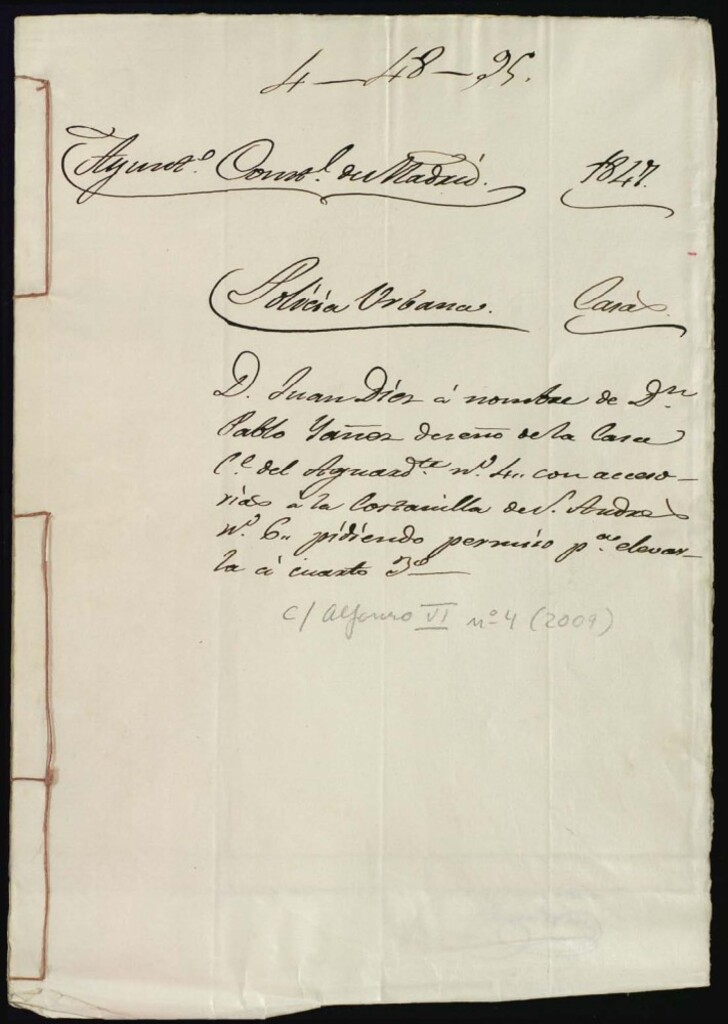 4-48-95.
Ayunt.º Const.l de Madrid. 1847.
Policia Urbana. Casas
D. Juan Diez á nombre de Dn
Pablo Yañez dueño de la Casa
C.e del Aguard.te n.º 4,, con acceso-
rias á la Costanilla de S. Andres
n.º 6,, pidiendo permiso p.a elevar-
la á cuarto 3º
C/ Alfonso VI nº 4 (2009)